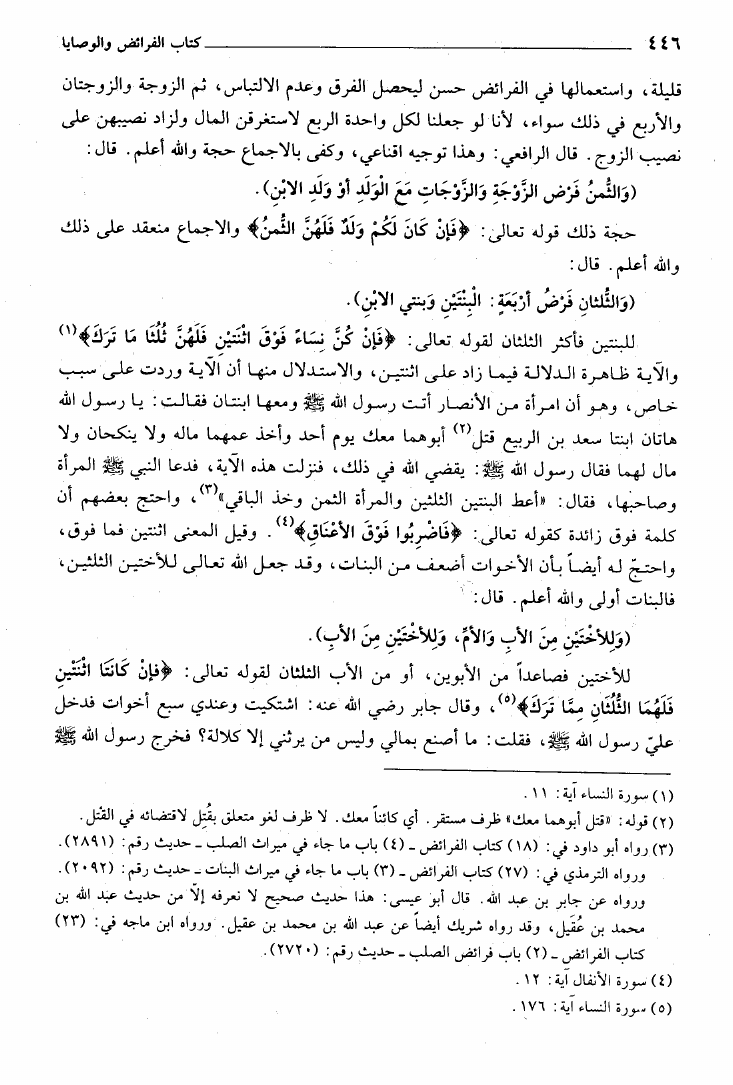 ٤٤٦ كتاب الفرائض والوصايا
قليلة، واستعمالها في الفرائض حسن ليحصل الفرق وعدم الالتباس، ثم الزوجة والزوجتان
والأربع في ذلك سواء، لأنا لو جعلنا لكل واحدة الربع لاستغرقن المال ولزاد نصيبهن على
نصيب الزوج. قال الرافعي: وهذا توجيه اقناعي، وكفى بالاجماع حجة والله أعلم. قال:
(وَالثُّمنُ فَرْض الزَّوْجَةِ وَالزَّوْجَاتِ مَعَ الْوَلَدِ أوْ وَلَدِ الابْنِ).
حجة ذلك قوله تعالى: ﴿فَإنْ كَانَ لَكُمْ وَلَدٌ فَلَهُنَّ الثُّمنُ﴾ والاجماع منعقد على ذلك
والله أعلم. قال:
(وَالثُّلثانِ فَرْضُ أرْبَعَةٍ: الْبِنْتَيْنِ وَبنتي الابْنِ).
للبنتين فأكثر الثلثان لقوله تعالى: ﴿فَإنْ كُنَّ نِسَاءً فَوْقَ اثْنَتَيْنِ فَلَهُنَّ ثُلُثَا مَا تَرَكَ﴾(١)
والآية ظاهرة الدلالة فيما زاد على اثنتين، والاستدلال منها أن الآية وردت على سبب
خاص، وهو أن امرأة من الأنصار أتت رسول الله ﷺ ومعها ابنتان فقالت: يا رسول الله
هاتان ابنتا سعد بن الربيع قتل(٢) أبوهما معك يوم أحد وأخذ عمهما ماله ولا ينكحان ولا
مال لهما فقال رسول الله ﷺ: يقضي الله في ذلك، فنزلت هذه الآية، فدعا النبي ﷺ المرأة
وصاحبها، فقال: «أعط البنتين الثلثين والمرأة الثمن وخذ الباقي»(٣)، واحتج بعضهم أن
كلمة فوق زائدة كقوله تعالى: ﴿فَاضْرِبُوا فَوْقَ الأعْنَاقِ﴾(٤). وقيل المعنى اثنتين فما فوق،
واحتجّ له أيضاً بأن الأخوات أضعف من البنات، وقد جعل الله تعالى للأختين الثلثين،
فالبنات أولى والله أعلم. قال:
(وَلِلأخْتَيْنِ مِنَ الأبِ وَالأمِّ، وَلِلأخْتَيْنِ مِنَ الأبِ).
للأختين فصاعداً من الأبوين، أو من الأب الثلثان لقوله تعالى: ﴿فإنْ كَانَتَا اثْنَتَيْنِ
فَلَهُمَا الثُّلُثَانِ مِمَّا تَرَكَ﴾(٥)، وقال جابر رضي الله عنه: اشتكيت وعندي سبع أخوات فدخل
عليّ رسول الله ﷺ، فقلت: ما أصنع بمالي وليس من يرثني إلا كلالة؟ فخرج رسول الله ﷺ
(١) سورة النساء آية: ١١.
(٢) قوله: «قتل أبوهما معك» ظرف مستقر. أي كائناً معك. لا ظرف لغو متعلق بقُتِل لاقتضائه في القَتْل.
(٣) رواه أبو داود في: (١٨) كتاب الفرائض ـ (٤) باب ما جاء في ميراث الصلب ـ حديث رقم: (٢٨٩١).
ورواه الترمذي في: (٢٧) كتاب الفرائض ـ (٣) باب ما جاء في ميراث البنات ـ حديث رقم: (٢٠٩٢).
ورواه عن جابر بن عبد الله. قال أبو عيسى: هذا حديث صحيح لا نعرفه إلّا من حديث عبد الله بن
محمد بن عُقَيل، وقد رواه شريك أيضاً عن عبد الله بن محمد بن عقيل. ورواه ابن ماجه في: (٢٣)
كتاب الفرائض ـ (٢) باب فرائض الصلب ـ حديث رقم: (٢٧٢٠).
(٤) سورة الأنفال آية: ١٢.
(٥) سورة النساء آية: ١٧٦.